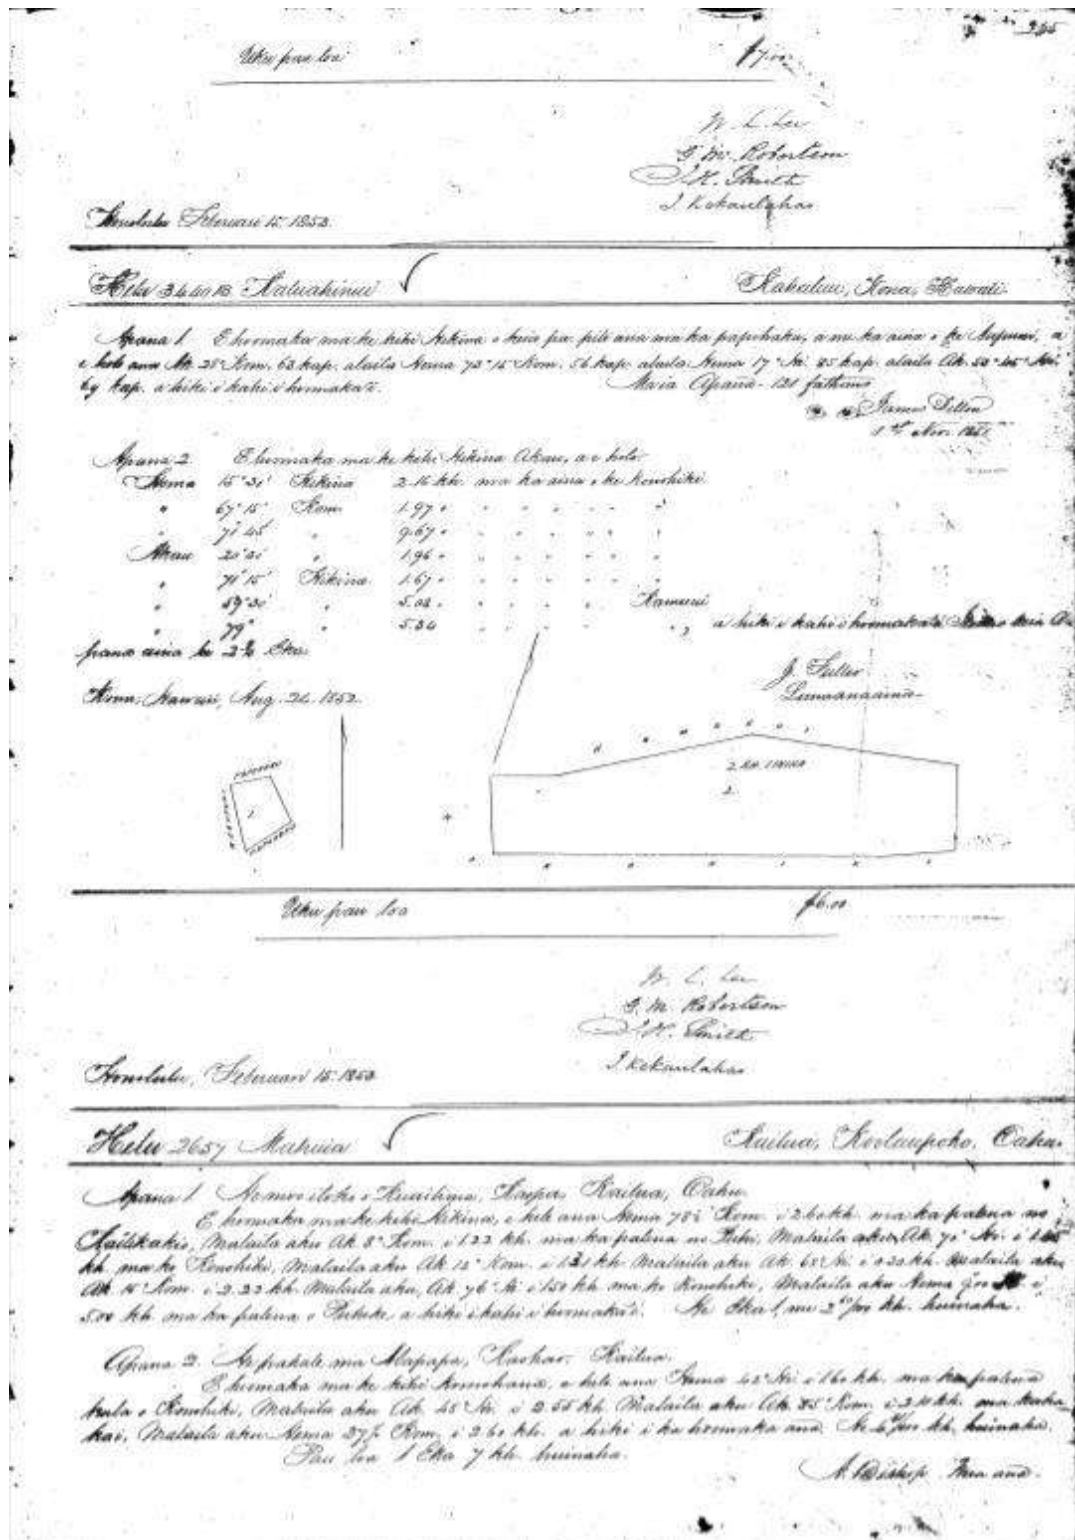 Uku pau loa $7.00
W. L. Lee
G. M. Robertson
J. H. Smith
J. Kekaulahao
Honolulu Feberuari 15. 1853.
Helu 3440B Kaluahinui Kahaluu, Kona, Hawaii.
Apana 1 E hoomaka ma ke kihi Hikina o keia pa pili ana me ka papohaku, a me ka aina o ke Aupuni, a
e holo ana Ak 25° Kom. 63 kap. alaila Hema 73° 15' Kom. 56 kap. alaila Hema 17° Hi. 85 kap. alaila Ak. 50° 45' Hi.
69 kap. a hiki i kahi i hoomaka'i. Maia Apana - 121 fathoms
James Dillon
1st Nov. 1851
Apana 2 E hoomaka ma ke kihi Hikina Akau, a e holo
Hema 15° 30' Hikina 2.16 kh. ma ka aina o ke Konohiki
" 67° 15' Kom. 1.97 "
" 71° 45' " 9.67 "
Akau 20° 30' " 1.96 "
" 71° 15' Hikina 1.67 "
" 59° 30' " 5.03 " Kamuenui
" 79° " 5.34 " a hiki i kahi i hoomaka'i
pana aina he Eka.
J. Fuller
Lunaanaaina
Kona, Hawaii, Aug. 24. 1852.
1
2
Uku pau loa $6.00
W. L. Lee
G. M. Robertson
J. H. Smith
J. Kekaulahao
Honolulu, Feberuari 15. 1853
Helu 2657 Mahuia Kailua, Koolaupoko, Oahu.
Apana 1 He moo i Kailua, Oahu.
E hoomaka ma ke kihi Hikina, e holo ana Hema 78½° Kom. i 2.60 kh. ma ka palena no
Malaila aku Ak 8° Kom. i 1.22 kh. ma ka palena no Malaila aku Ak. 70° Hi. i
kh. ma ko Konohiki, Malaila aku Ak 12° Kom. i 1.21 kh Malaila aku Ak. 65° Hi i 0.20 kh Malaila aku
Ak 15° Kom. i 2.22 kh. Malaila aku, Ak 76° Hi i 1.50 kh ma ko Konohiki, Malaila aku Hema i
5.00 kh ma ka palena o a hiki i kahi i hoomaka'i. He Eka 1, me kh. huinaha.
Apana 2. He pahale ma Alapapa, Kaohao. Kailua.
E hoomaka ma ke kihi Komohana, e holo ana Hema 42° Hi i 1.60 kh. ma ka palena
kula o Konohiki, Malaila aku Ak 45° Hi. i 2.55 kh. Malaila aku Ak 85° Kom. i 2.10 kh. ma kaha
kai, Malaila aku Hema Kom. i 2.60 kh. a hiki i ka hoomaka ana. kh. huinaha.
Pau loa 1 Eka 7 kh. huinaha.
A. Bishop Mea ana.